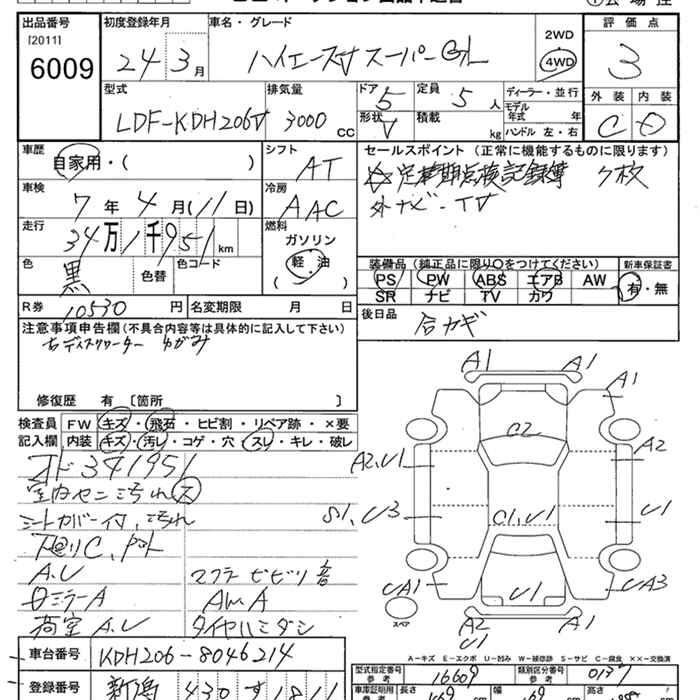 出品番号 初度登録年月 車名・グレード 2WD 評価点
[2011] 6009 24 3月 ハイエースV スーパーGL 4WD 3
型式 排気量 ドア 5 定員 5人 ディーラー・並行 外装 内装
LDF-KDH206V 3000 CC 形状 V 積載 kg モデル年式 年 ハンドル 左・右 C D
車歴 自家用・( ) シフト AT セールスポイント (正常に機能するものに限ります)
☆定期点検記録簿 7枚
車検 7年4月(11日) 冷房 AAC 外ナビ・TV
走行 34万1千951km 燃料 ガソリン 軽油 ( )
色 黒 色替 色コード 装備品(純正品に限り○をつけてください) 新車保証書
PS PW ABS エアB AW 有・無
SR ナビ TV カワ
R券 10530円 名変期限 月 日 後日品 合カギ
注意事項申告欄(不具合内容等は具体的に記入して下さい)
右ディスクローター ゆがみ
修復歴 有 〔箇所 〕
検査員 FW キズ・飛石・ヒビ割・リペア跡・×要
記入欄 内装 キズ・汚レ・コゲ・穴・スレ・キレ・破レ
メド341951
室内ヤニ汚れ ス
シートカバー付、汚れ
下廻りC、
A.U マフラービビリ音
ロミラーA AW.A
荷室 A.U タイヤハミダシ
A1 A1 A1
C2
A2,U1 A2
S1,U3 C1,U1 U1
UA1 U1 UA3
スペア A2 A1
U1
A-キズ E-エクボ U-凹み W-補修跡 S-サビ C-腐食 ××-交換済
車台番号 KDH206-8046214
型式指定番号 参考 16609 類別区分番号 参考 0137
登録番号 新潟 430 す 1811
車庫証明用 参考 長さ 469 cm 幅 169 cm 高さ